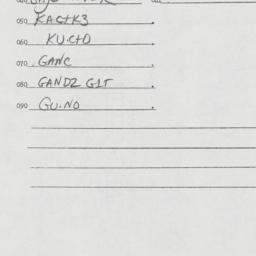 050 KACTK3
060 KUCTO
070 GANC
080 GANDZ G1T
090 GU.NO